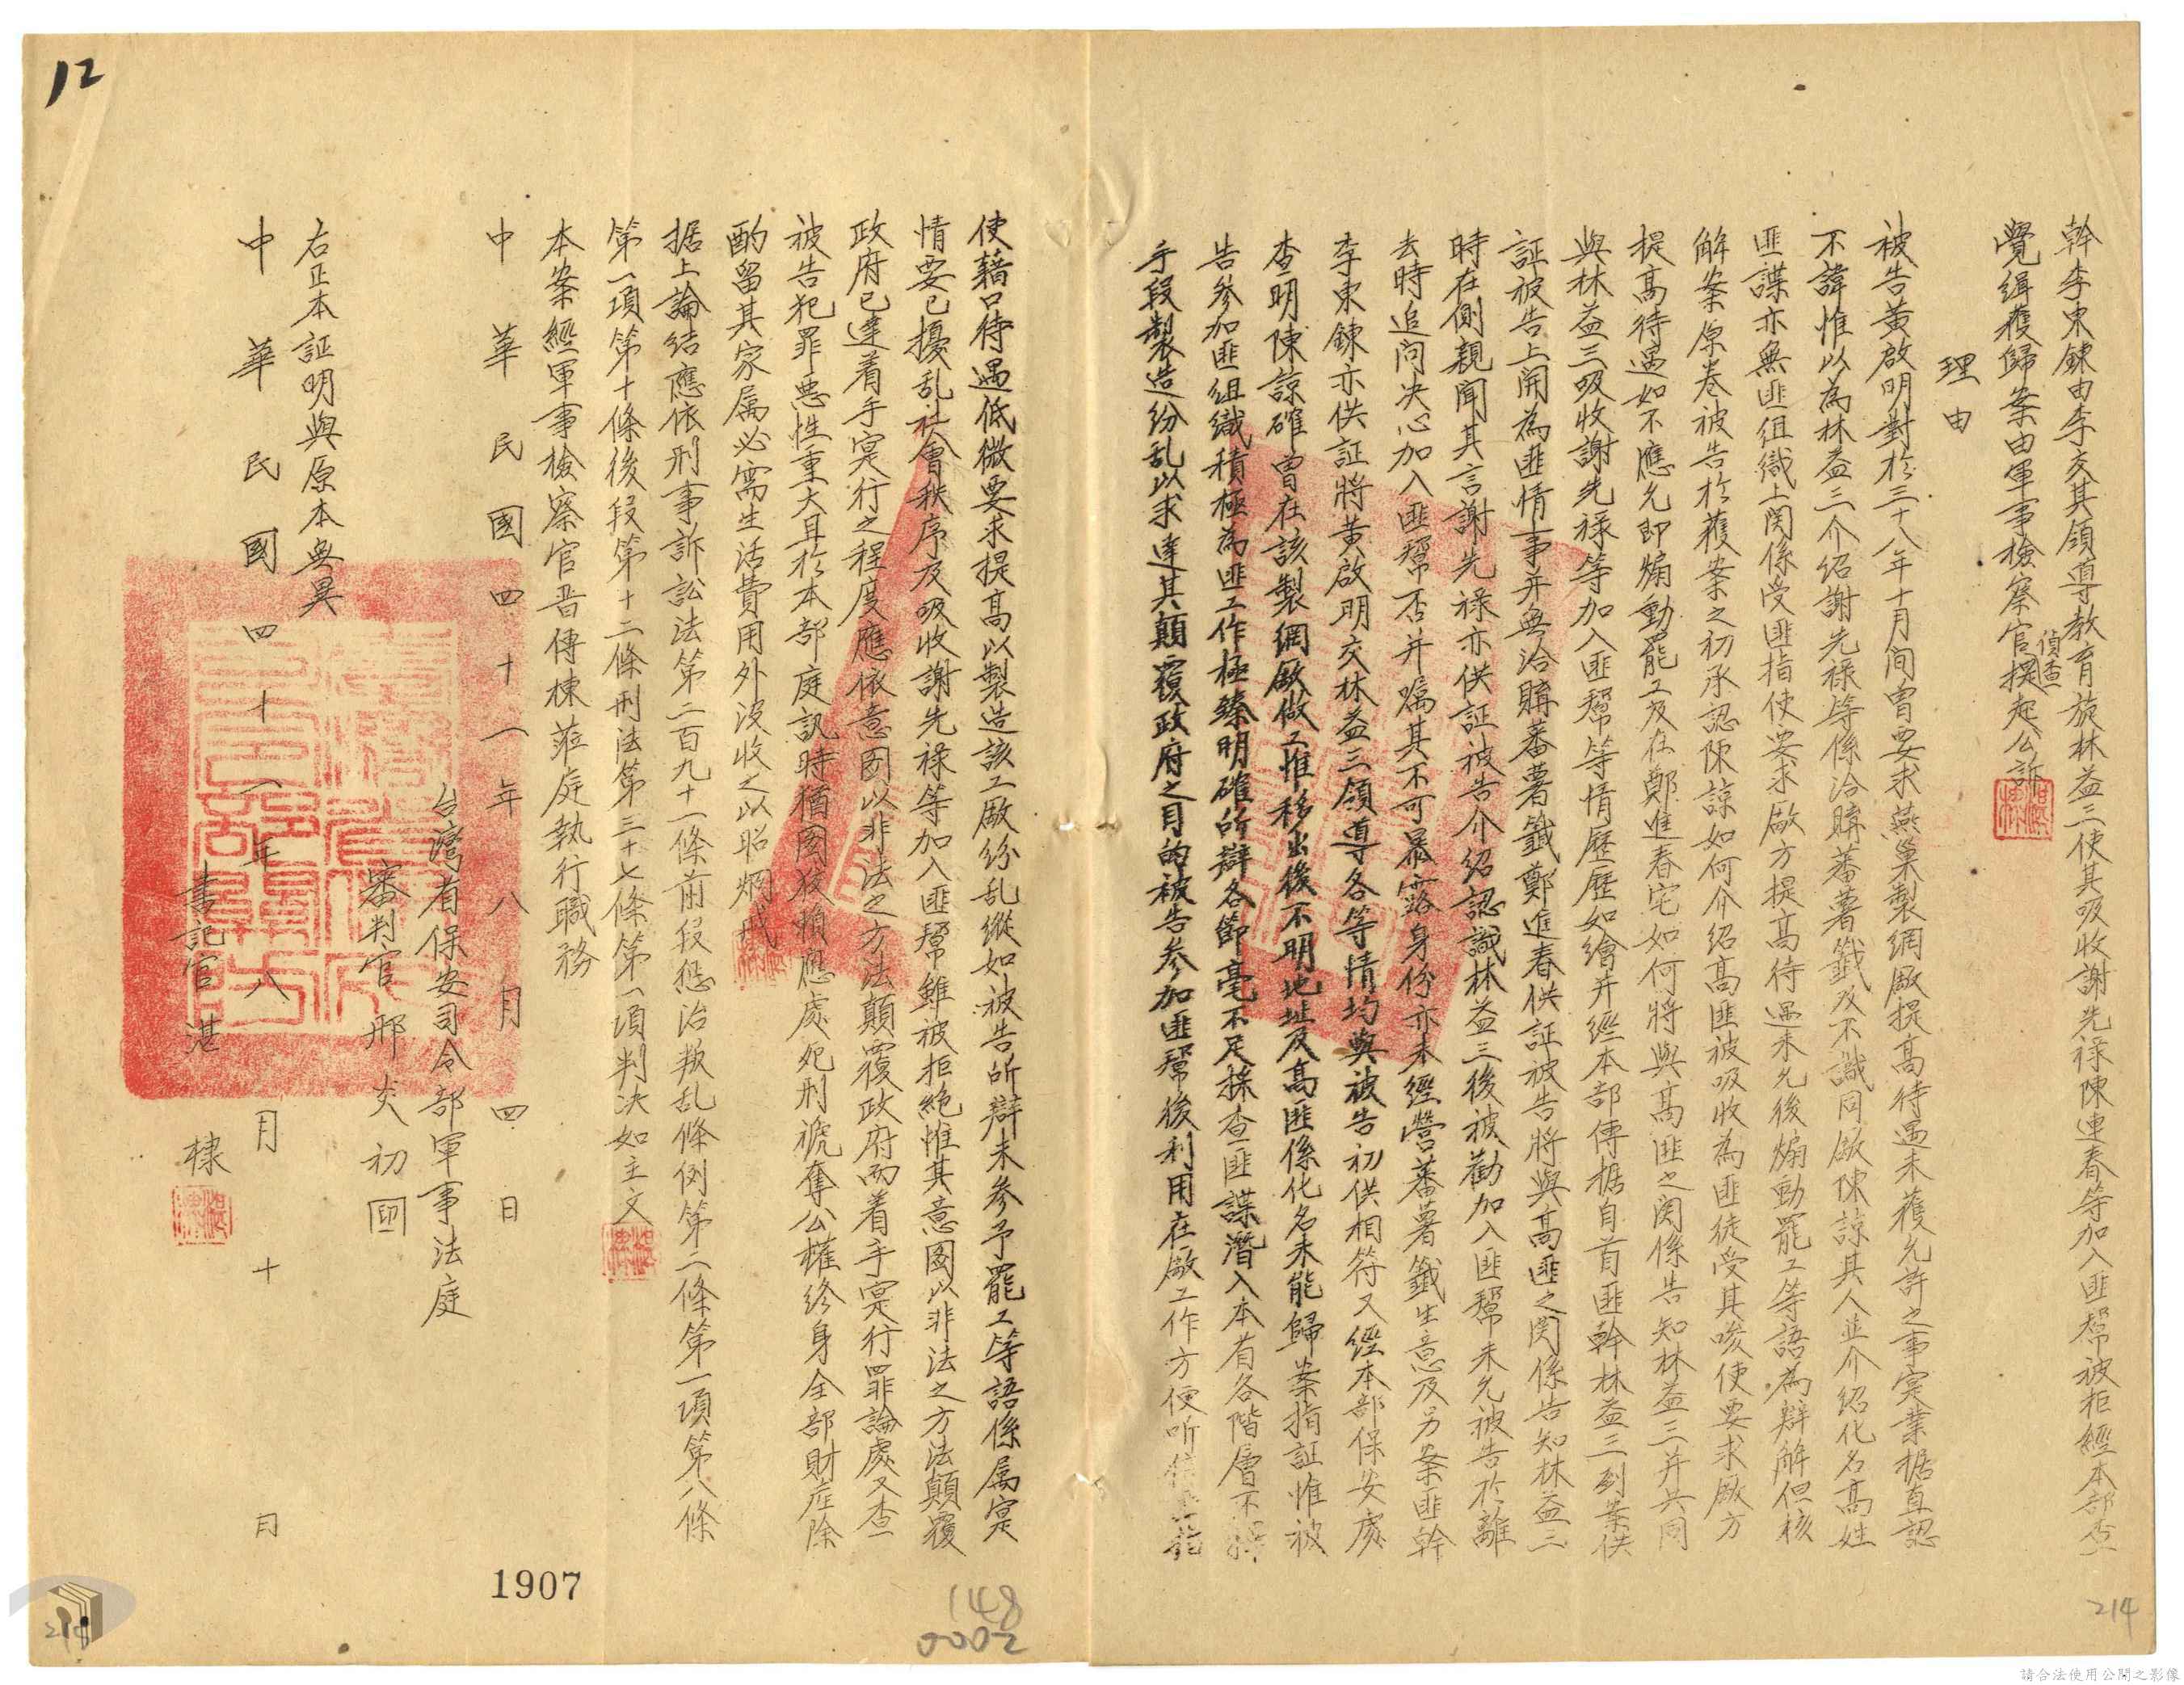 12
幹李東鍊由李交其領導教育旋林益三使其吸收謝先祿陳連春等加入匪幫被拒經本部查
覺緝獲歸案由軍事檢察官偵查提起公訴
理由
被告黃啟明對於三十八年十月间曾要求燕巢製網廠提高待遇未獲允許之事寔業据直認
不諱惟以為林益三介紹謝先祿等係洽購蕃薯籤及不識同廠陳諒其人並介紹化名高姓
匪諜亦無匪组織上関係受匪指使要求廠方提高待遇未允後煽動罷工等語為辯解但核
觧案原卷被告於獲案之初承認陳諒如何介紹高匪被吸收為匪徒受其唆使要求廠方
提高待遇如不應允即煽動罷工及在鄭進春宅如何將與高匪之関係告知林益三并共同
與林益三吸收謝先祿等加入匪幫等情歷歷如繪并經本部傳据自首匪幹林益三到案供
証被告上開為匪情事并無洽購蕃薯籤鄭進春供証被告將與高匪之関係告知林益三
時在側親聞其言謝先祿亦供証被告介紹認識林益三後被勸加入匪幫未允被告於離
去時追问决心加入匪幫否并囑其不可暴露身份亦未經營蕃薯籤生意及另案匪幹
李東鍊亦供証將黃啟明交林益三領導各等情均與被告初供相符又經本部保安處
查明陳諒確曾在該製網廠做工惟移出後不明地址及高匪係化名未能歸案指証惟被
告參加匪组織積極為匪工作極臻明確所辯各節毫不足採查匪諜潛入本省各階層不擇
手段製造紛乱以求達其顛覆政府之目的被告參加匪幫後利用在廠工作方便听
使藉口待遇低微要求提高以製造該工廠紛乱縱如被告所辯未參予罷工等語係属寔
情要已擾乱社會秩序及吸收謝先祿等加入匪幫雖被拒絶惟其意圖以非法之方法顛覆
政府已達着手寔行之程度應依意图以非法之方法顛覆政府而着手寔行罪論處又查
被告犯罪惡性重大且於本部庭訊時猶圖狡賴應處死刑褫奪公權終身全部財産除
酌留其家属必需生活費用外沒收之以昭炯戒
据上論结應依刑事訴訟法第二百九十一條前段惩治叛乱條例第二條第一項第八條
第一項第十條後段第十二條刑法第三十七條第一項判决如主文
本案經軍事檢察官晋傳棟蒞庭執行職務
中華民國四十一年八月四日
台灣省保安司令部軍事法庭
審判官邢炎初 印
右正本証明與原本無異
中華民國四十一年八月十日
書記官湛棣
1907
148
0002
214
214
請合法使用公開之影像